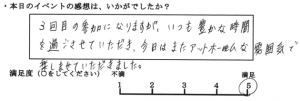 ・本日のイベントの感想は、いかがでしたか？
3回目の参加になりますが、いつも豊かな時間
を過ごさせていただき、今日はまたアットホームな雰囲気で
楽しませていただきました。
満足度（○をしてください） 不満 満足
1 2 3 4 5